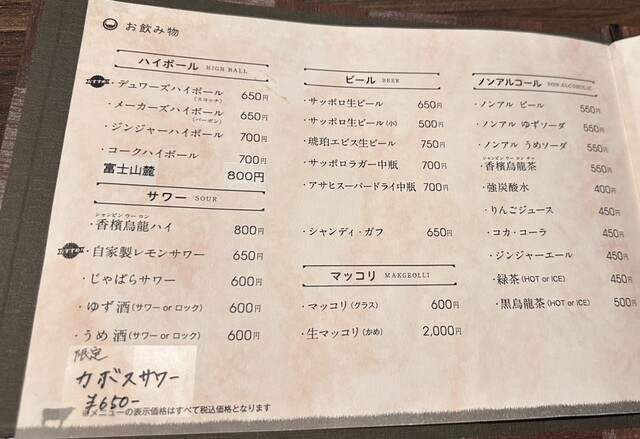 お飲み物
ハイボール HIGH BALL
おすすめ
・デュワーズハイボール 650円
(スコッチ)
・メーカーズハイボール 650円
(バーボン)
・ジンジャーハイボール 700円
・コークハイボール 700円
富士山麓 800円
サワー SOUR
シャンピン ウー ロン
・香檳烏龍ハイ 800円
おすすめ
・自家製レモンサワー 650円
・じゃばらサワー 600円
・ゆず酒(サワー or ロック) 600円
・うめ酒(サワー or ロック) 600円
限定
カボスサワー
¥650-
※メニューの表示価格はすべて税込価格となります
ビール BEER
・サッポロ生ビール 650円
・サッポロ生ビール(小) 500円
・琥珀ヱビス生ビール 750円
・サッポロラガー中瓶 700円
・アサヒスーパードライ中瓶 700円
・シャンディ・ガフ 650円
マッコリ MAKGEOLLI
・マッコリ(グラス) 600円
・生マッコリ(かめ) 2,000円
ノンアルコール NON ALCOHOLIC
・ノンアル ビール 550円
・ノンアル ゆずソーダ 550円
・ノンアル うめソーダ 550円
シャンピン ウー ロン チャ
・香檳烏龍茶 550円
・強炭酸水 400円
・りんごジュース 450円
・コカ・コーラ 450円
・ジンジャーエール 450円
・緑茶(HOT or ICE) 450円
・黒烏龍茶(HOT or ICE) 500円